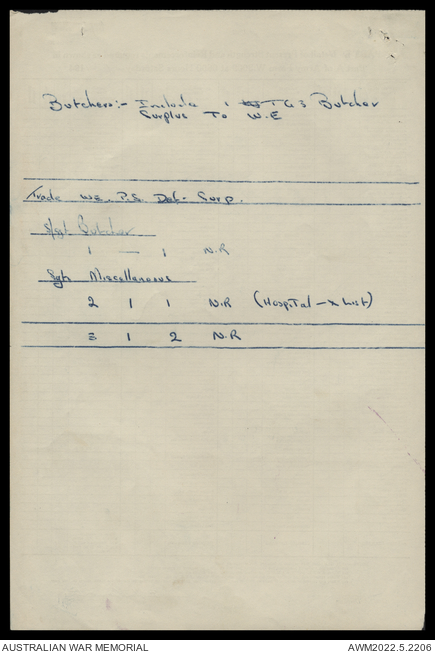 Butchers:- Include 1 G3 Butcher
Surplus To W.E
Trade WE. P.S. Def. Surp.
S/Sgt Butcher
1 — 1 N.R
Sgt Miscellaneous
2 1 1 N.R (Hospital - X List)
3 1 2 N.R
AUSTRALIAN WAR MEMORIAL
AWM2022.5.2206